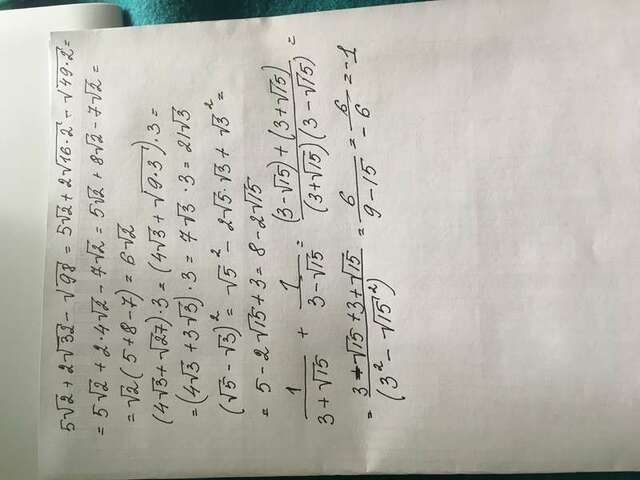 5√2 + 2√32 − √98 = 5√2 + 2√(16·2) − √(49·2) =
= 5√2 + 2·4√2 − 7√2 = 5√2 + 8√2 − 7√2 =
= √2 (5 + 8 − 7) = 6√2
(4√3 + √27)·3 = (4√3 + √(9·3))·3 =
= (4√3 + 3√3)·3 = 7√3 ·3 = 21√3
(√5 − √3)² = √5² − 2√5·√3 + √3² =
= 5 − 2√15 + 3 = 8 − 2√15
1/(3 + √15) + 1/(3 − √15) = ((3 − √15) + (3 + √15))/((3 + √15)(3 − √15)) =
= (3 − √15 + 3 + √15)/(3² − √15²) = 6/(9 − 15) = 6/−6 = −1